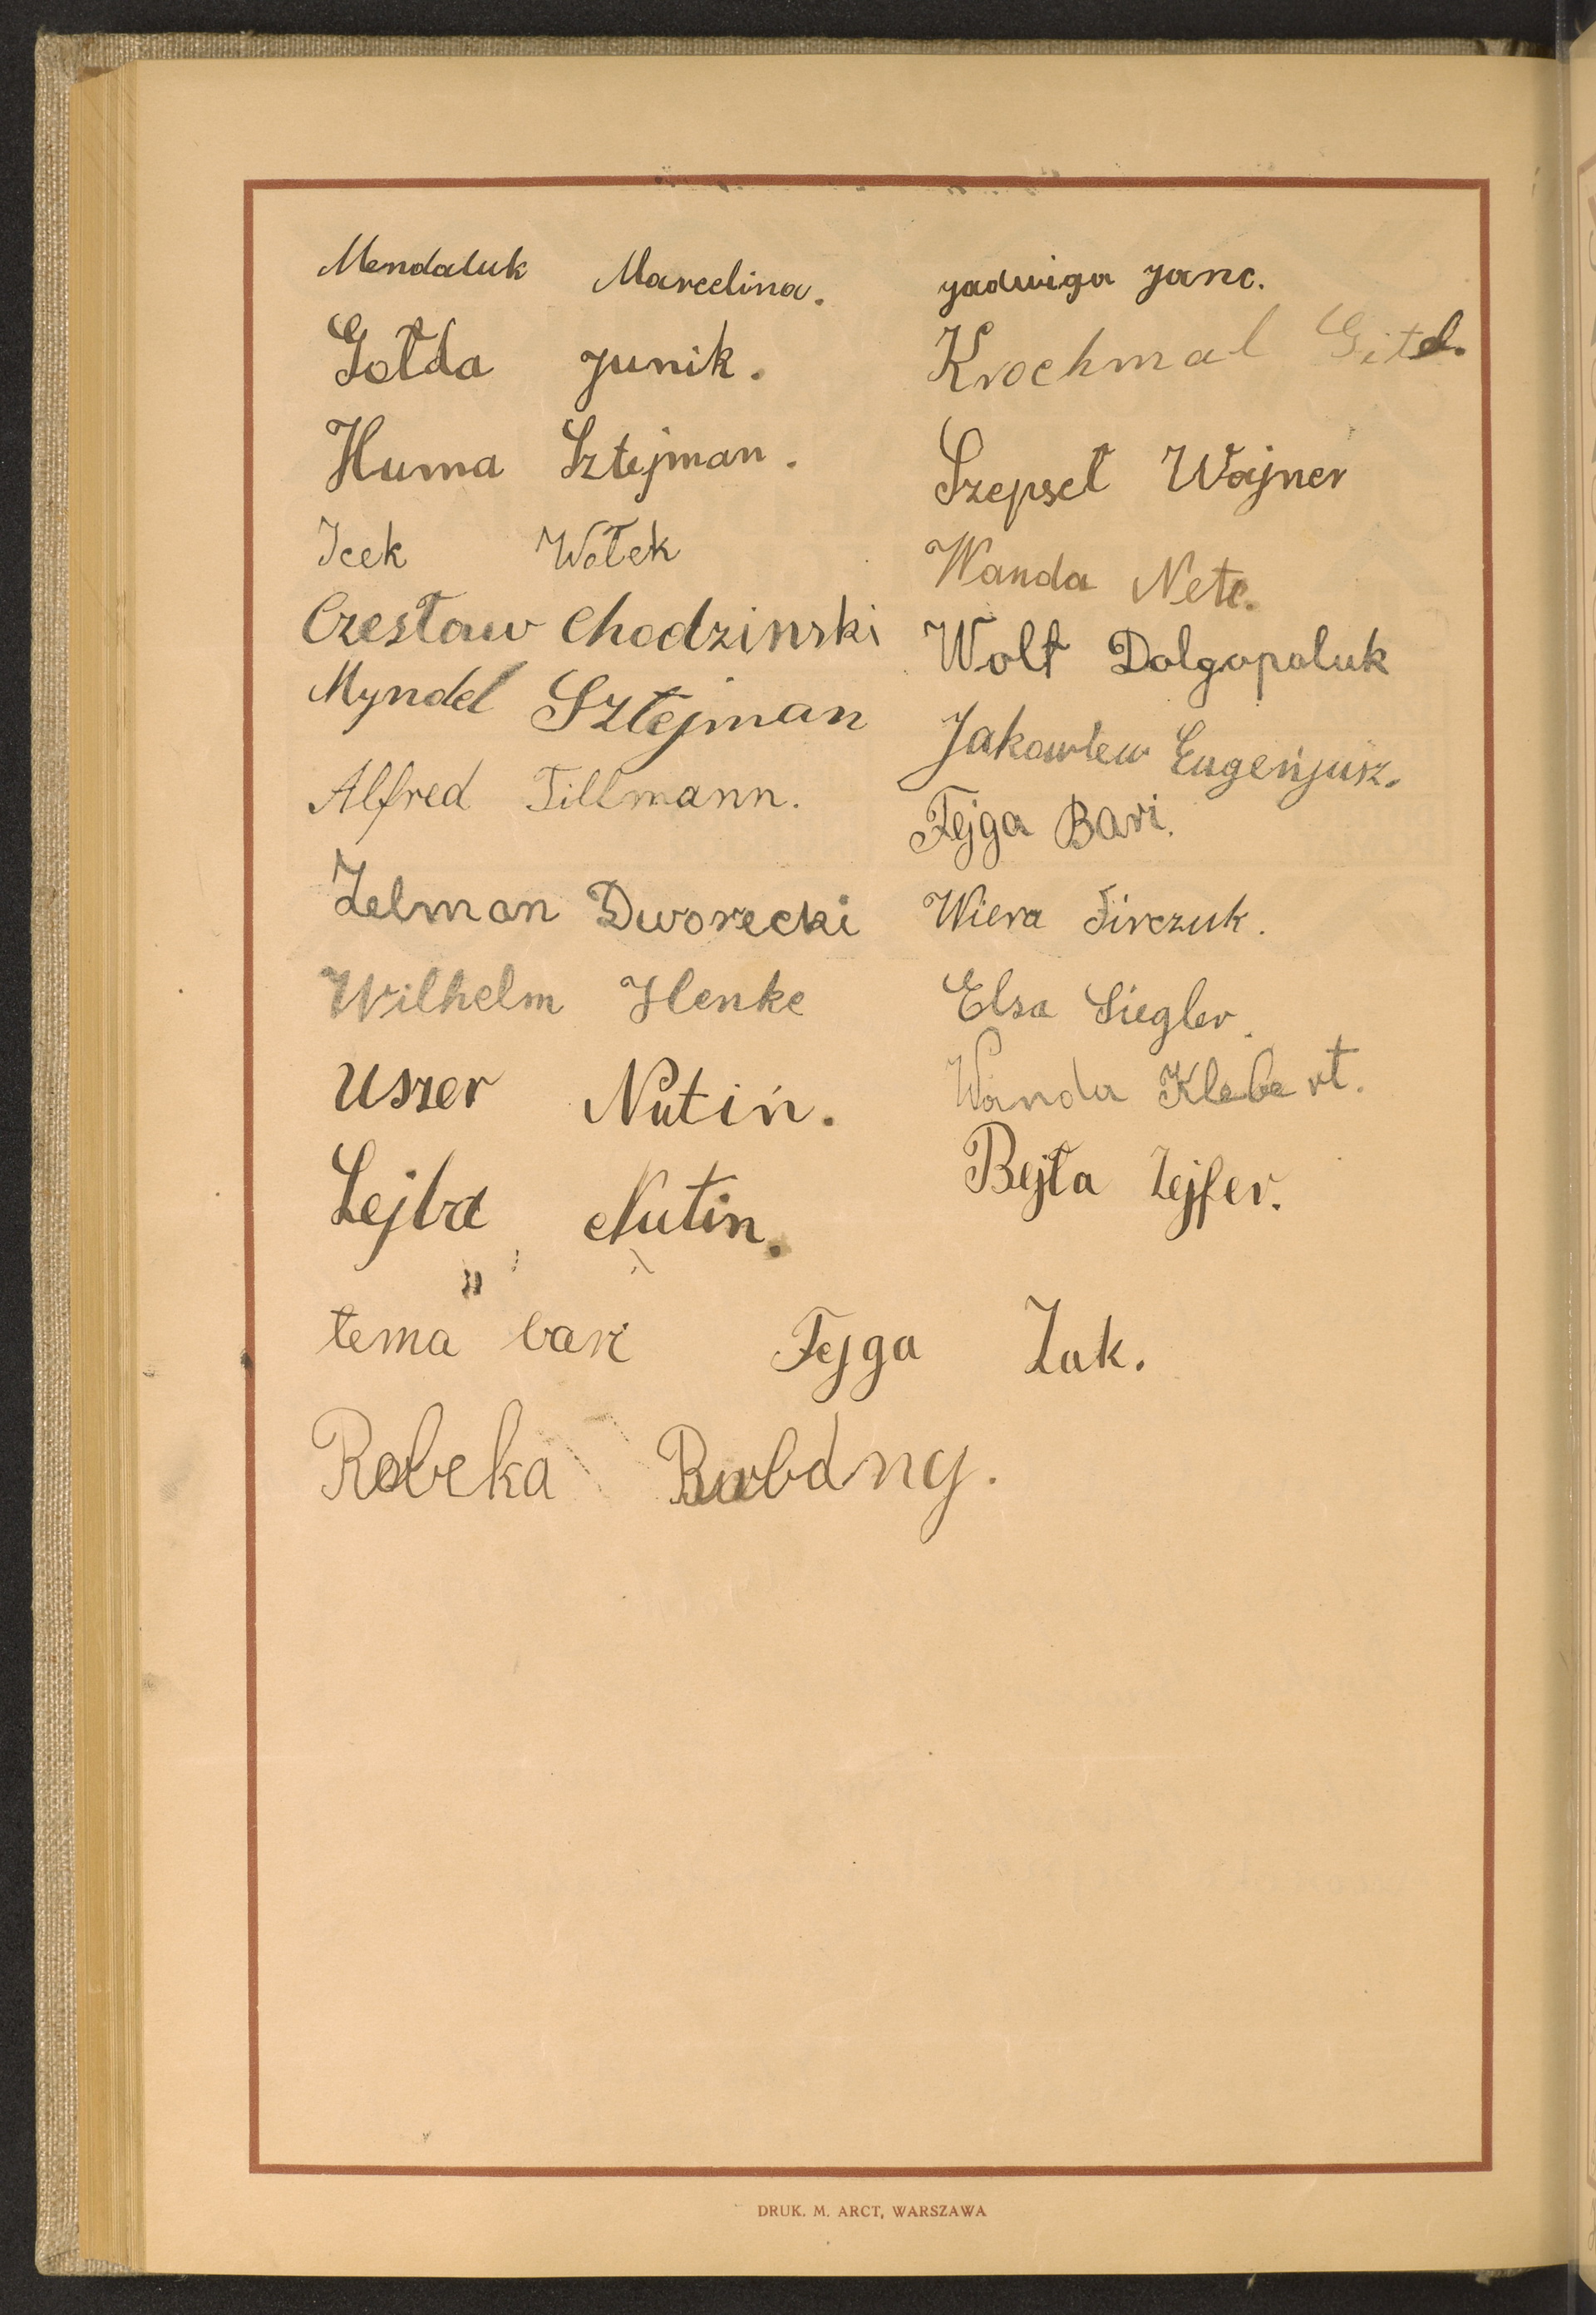 Mendaluk Marcelina.
Gołda Junik.
Huma Sztejman.
Icek Wołek
Czesław Chodzinski
Myndel Sztejman
Alfred Tillmann.
Zelman Dworecki
Wilhelm Henke
Uszer Nutiń.
Lejba Nutin.
tema bari
Robeka
Jadwiga Janc.
Krochmal Gitel.
Szepsel Wajner
Wanda Netc.
Wolf Dolgopoluk
Jakowlew Eugenjusz.
Fejga Bari.
Wiera Firczuk.
Elsa Siegler.
Wanda Klebert.
Bejła Zejfer.
Fejga Zak.
DRUK. M. ARCT, WARSZAWA